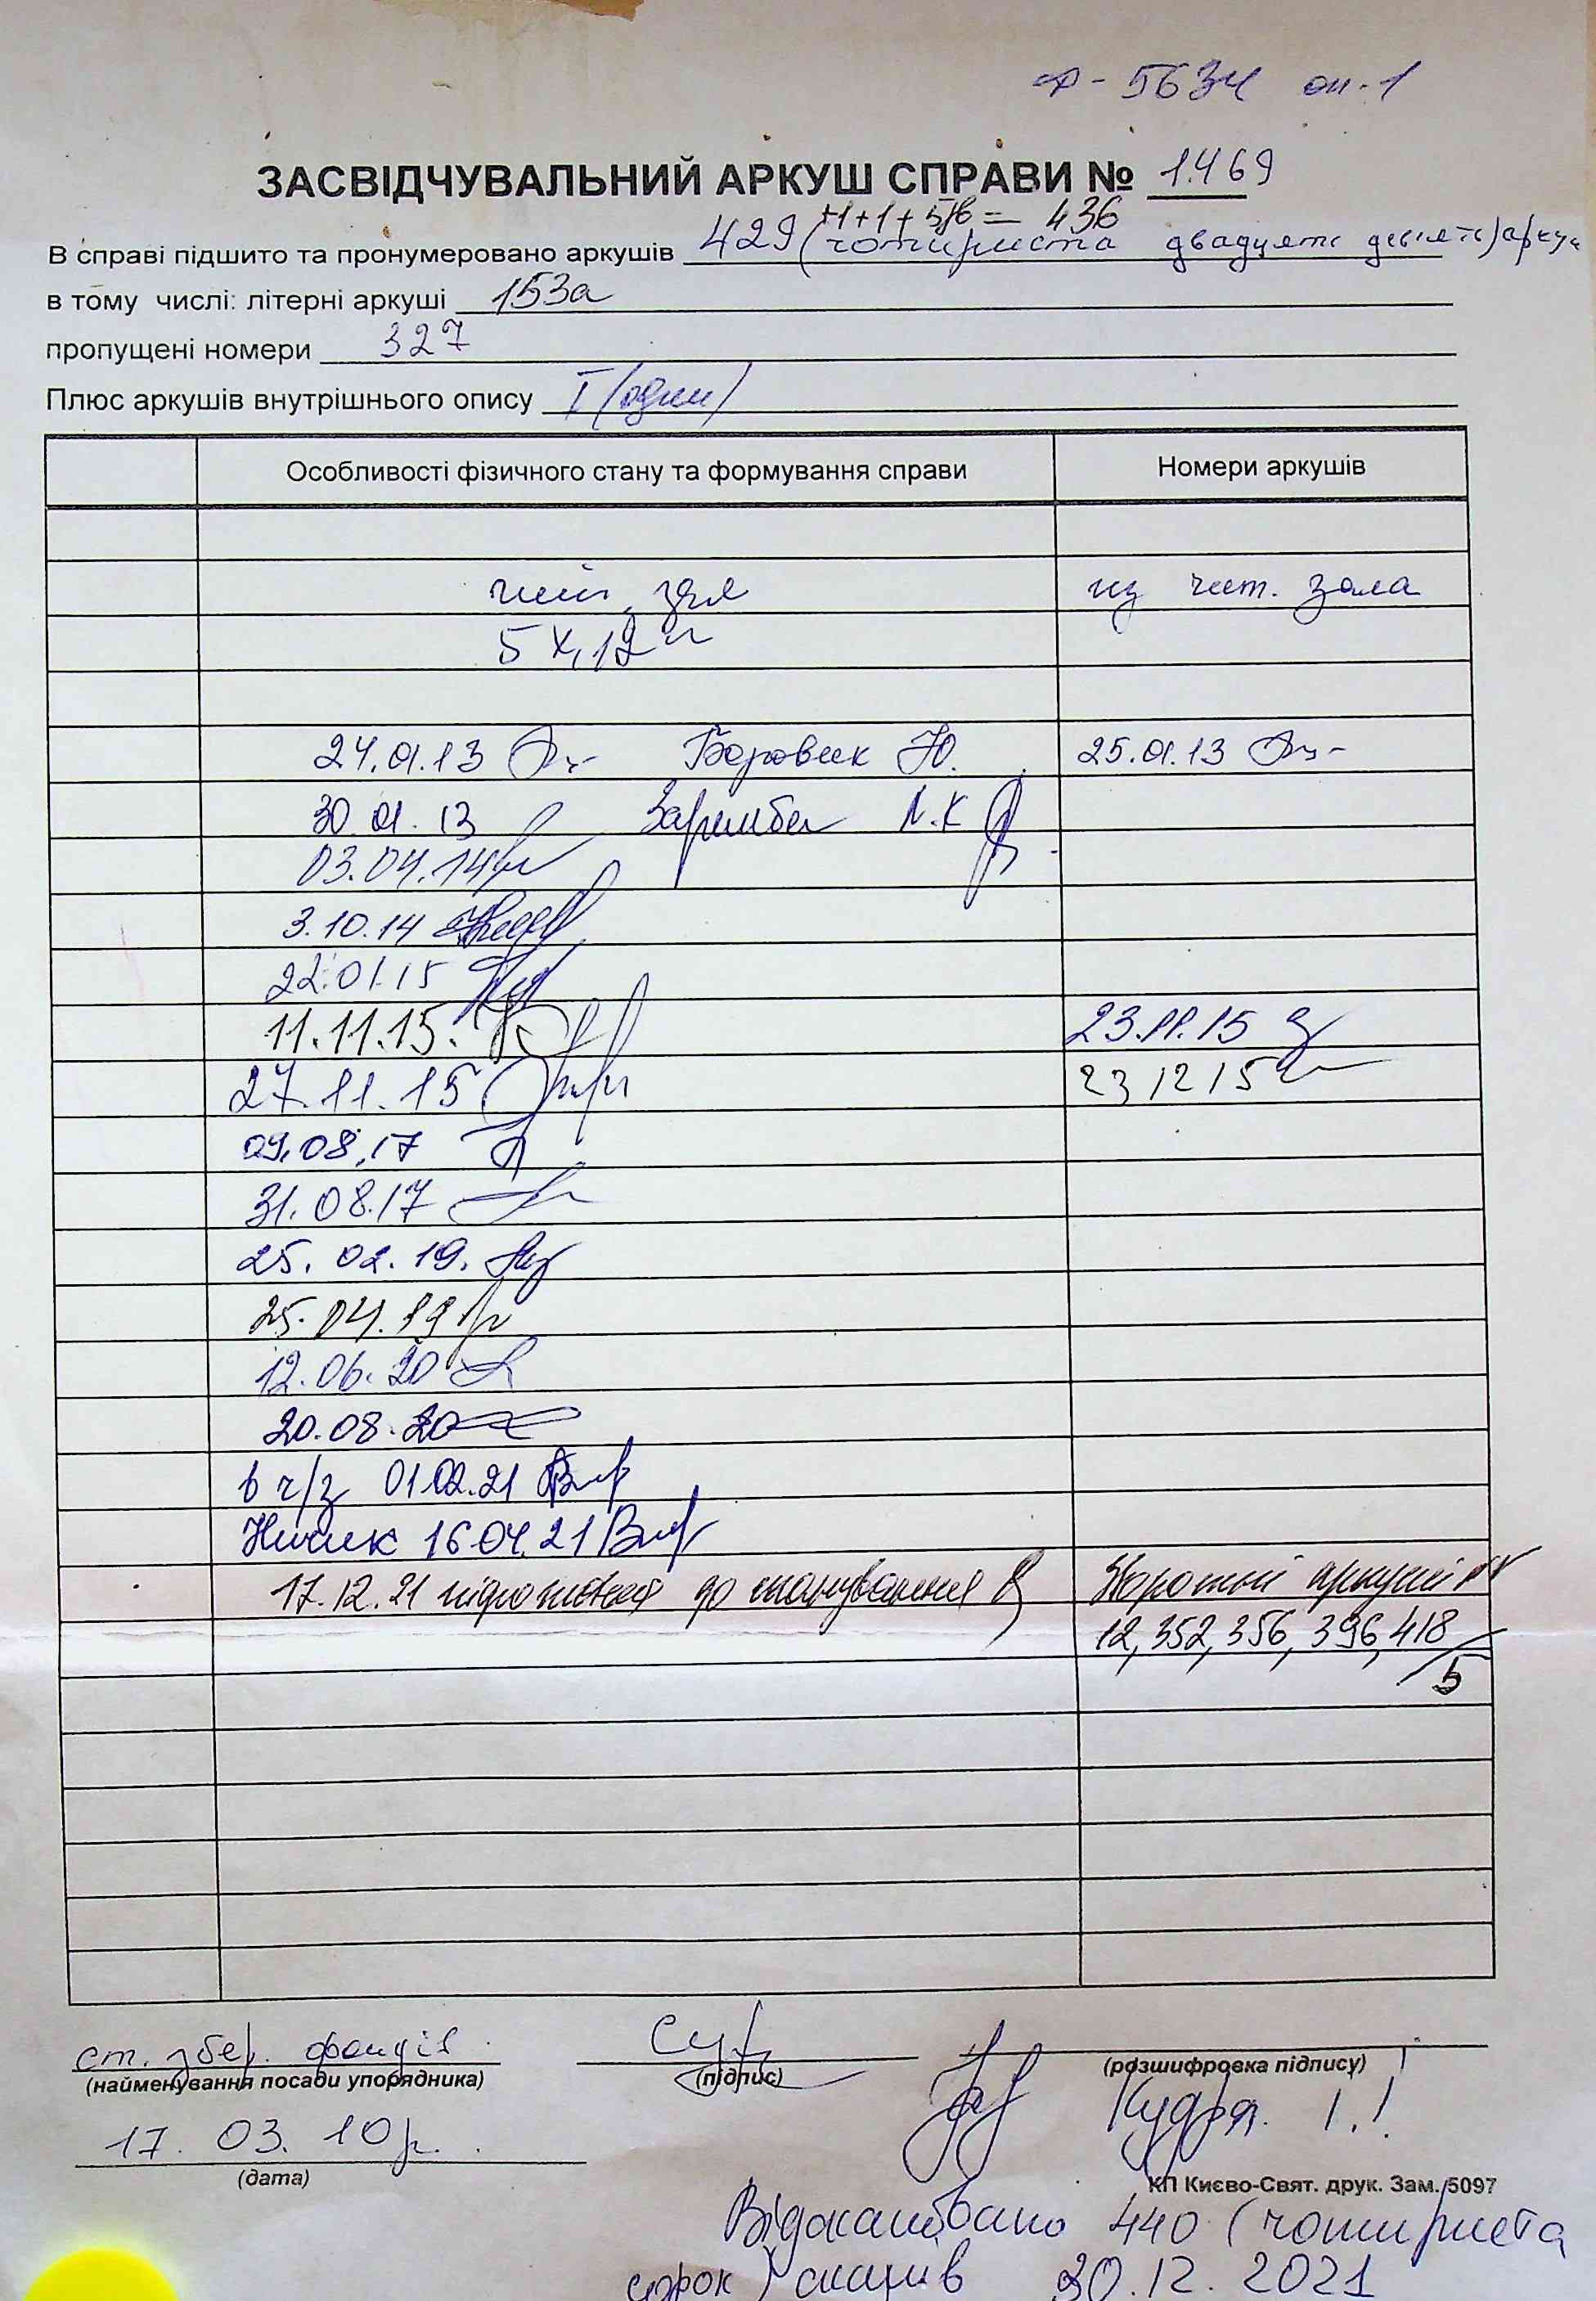 ф-5634 оп-1
ЗАСВІДЧУВАЛЬНИЙ АРКУШ СПРАВИ № 1469
+1+1+5/6 = 436
В справі підшито та пронумеровано аркушів 429 (чотириста двадцять девять) арку
в тому числі: літерні аркуші 153а
пропущені номери 327
Плюс аркушів внутрішнього опису 1 (один)
Особливості фізичного стану та формування справи Номери аркушів
чит. зал из чит. зала
5 X, 12
24.01.13 Боровик Ю. 25.01.13
30.01.13
03.04.14
3.10.14
22.01.15
11.11.15. 23.11.15
27.11.15 23 12 15
09.08.17
31.08.17
25.02.19.
25.04.19
12.06.20
20.08.20
в ч/з 01.02.21
16.04.21
17.12.21 до сканування аркуші
12, 352, 356, 396, 418
5
ст. збер. фондів
(найменування посади упорядника) (підпис) (розшифровка підпису)
Кудря І.І
17. 03. 10р.
(дата)
КП Києво-Свят. друк. Зам. 5097
Відскановано 440 (чотириста
сорок) сканів 30.12.2021